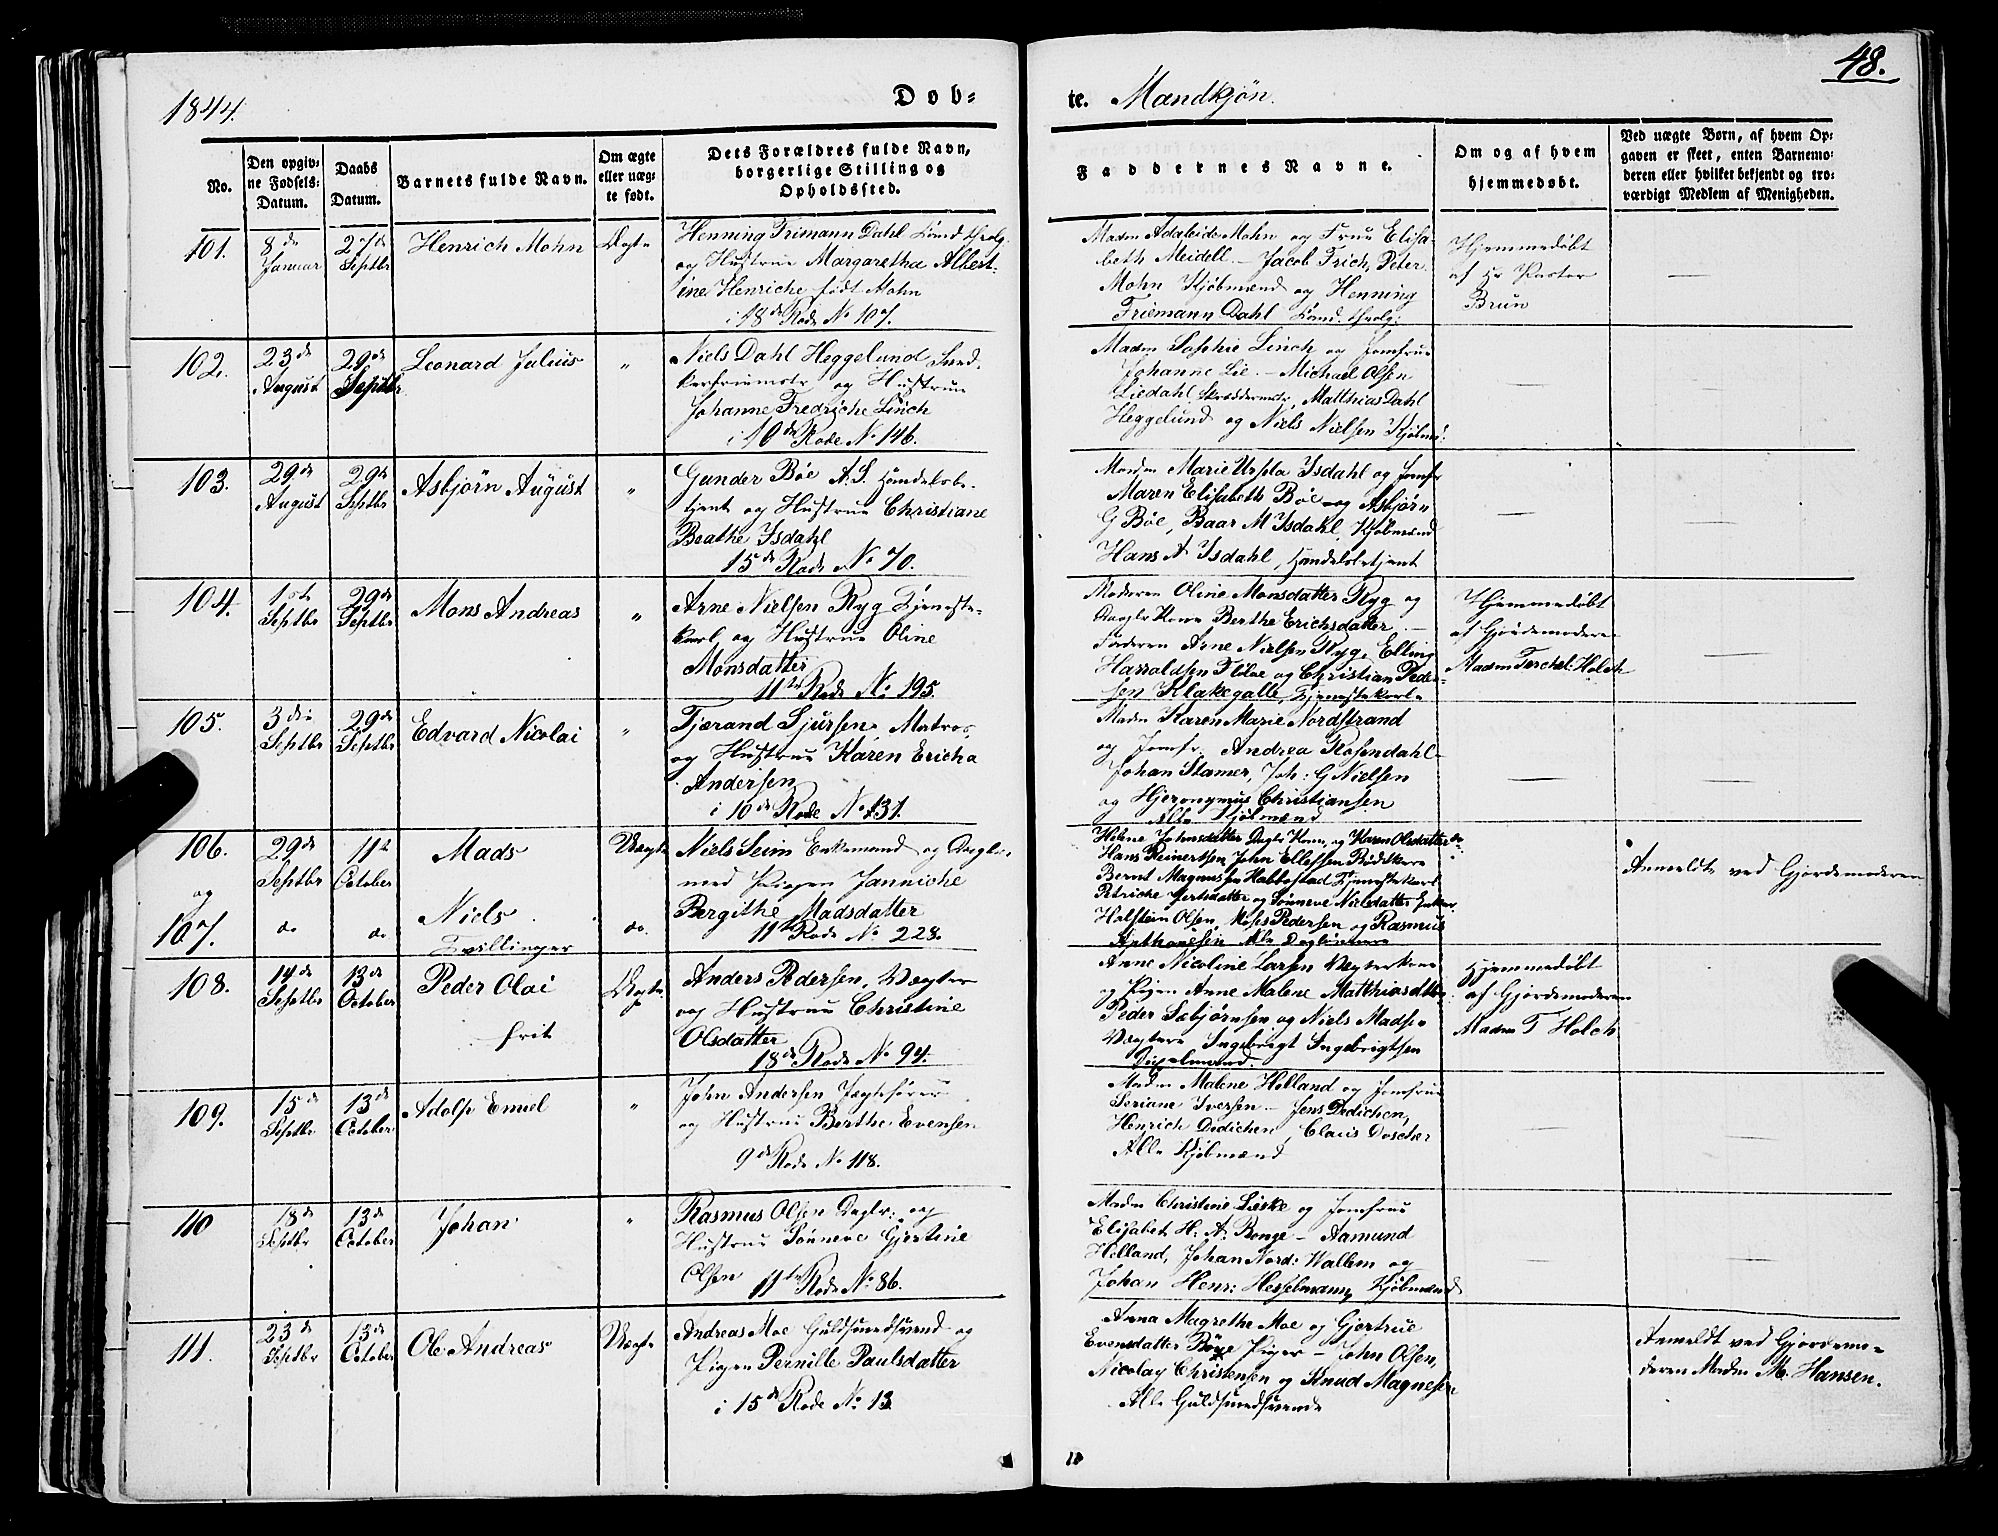 1844.
Døb-
te. Mandkjøn.
48.
No.
Den opgiv-
ne Fødsels-
Datum.
Daabs
Datum.
Barnets fulde Navn.
Om ægte
eller uæg-
te født.
Dets Forældres fulde Navn,
borgerlige Stilling og
Opholdssted.
Faddernes Navne.
Om og af hvem
hjemmedøbt.
Ved uægte Børn, af hvem Op-
gaven er skeet, enten Barnemo-
deren eller hvilket bekjendt og tro-
værdigt Medlem af Menigheden.
101.
8de
Januar
27de
Septbr
Henrich Mohn
Ægte
Henning Frimann Dahl Cand. theolg.
og Hustrue Margaretha Albert-
ine Henriche født Mohn
i 18de Rode No 107.
Madm Adaleide Mohn og Frue Elisa-
beth Meidell. – Jacob Frich, Peter
Mohn Kjøbmænd og Henning
Friemann Dahl Cand. theolg:
Hjemmedøbt
af Hr Pastor
Brun
—
102.
23de
August
29de
Septbr
Leonard Julius
"
Niels Dahl Heggelund Sned-
kersvendmstr og Hustrue
Johanne Fredriche Linch
i 10de Rode No 146.
Madm Sophie Linch og Jomfrue
Johanne Lie. – Michael Olsen
Liedahl Skræddermstr, Matthias Dahl
Heggelund og Niels Nielsen Kjøbmd.
—
—
103.
29de
August
29de
Septbr
Asbjørn August
"
Gunder Bøe A.S. Handelsbe-
tjent og Hustrue Christiane
Beathe Isdahl
15de Rode No 70.
Madm Marie Ursula Isdahl og Jomfr
Maren Elisabeth Bøe og Asbjørn
G Bøe, Baar M Isdahl, Kjøbmænd
Hans A Isdahl, Handelsbetjent
—
—
104.
1ste
Septbr
29de
Septbr
Mons Andreas
"
Arne Nielsen Ryg Tjeneste-
karl, og Hustrue Oline
Monsdatter
11te Rode No 195.
Moderen Oline Monsdatter Ryg og
Dagls Kone Berthe Erichsdatter –
Faderen Arne Nielsen Ryg, Elling
Harroldsen Fløve og Christian Peder-
sen Klakegalle, Tjenestekarle
Hjemmedøbt
af Gjordemoderen
Madm Terchel. Holch
—
105.
3die
Septbr
29de
Septbr
Edvard Nicolai
"
Tjærand Sjursen Matros
og Hustrue Karen Ericha
Andersen
i 10de Rode No 131.
Madm Karen Marie Nordstrand
og Jomfr. Andrea Rosendahl –
Johan Stamer, Joh: G Nielsen
og Hjeronymus Christiansen
Alle Kjøbmænd
—
—
106.
og
107.
29de
Septbr
do
11te
October
do
Mads
Niels
Tvillinger
Uægte
do.
Niels Seim Enkemand og Dagln.
med Pigen Janniche
Bergithe Madsdatter
11te Rode No 228.
Helene Johnsdatter Dagls Kone, og Karen Olsdatter do:
Hans Reinertsen, John Ellefsen Bødkere
Bernt Magnussen Habbestad Tjenestekarl
Petriche Gertsdatter og Sønneve Nielsdatter Enker.
Halstein Olsen, Moses Pedersen og Rasmus
Anthonesen Alle Dagleiere
Anmeldt ved Gjordemoderen
108.
14de
Septbr
13de
October
Peder Olai
frit
Ægte
Anders Pedersen, Vægter
og Hustrue Christine
Olsdatter
18de Rode No 94.
Anne Nicoline Larsen Vægterkone
og Pigen Anne Malene Matthiasdtter
Peder Sæbjørnsen og Niels Madsen
Vægtere Ingebrigt Ingebrigtsen
Hjemmedøbt
af Gjordemoderen
Madm T Holch
109.
15de
Septbr
13de
October
Adolf Emiel
"
John Andersen Jægtefører
og Hustrue Berthe Evensen
9de Rode No 118.
Madm Malene Helland og Jomfrue
Seriane Iversen – Jens Dedichen,
Henrich Dedichen, Claus Doscher
Alle Kjøbmænd
—
—
110
18de
Septbr
13de
October
Johan
"
Rasmus Olsen Daglr. og
Hustrue Sønneve Gjertine
Olsen 11te Rode No 86.
Madm Christine Lieske og Jomfrue
Elisabet H. A. Ronge – Aamund
Helland, Johan Nord: Wallem og
Johan Henr: Hesselmann Kjøbmænd
—
—
111.
23de
Septbr
13de
October
Ole Andreas
Uægte
Andreas Moe Guldsmedsvend og
Pigen Pernille Paulsdatter
i 15de Rode No 13
Anna Magrethe Moe og Gjertrue
Evensdatter Bøye Piger – John Olsen,
Nicolay Christensen og Knud Magnesen
Alle Guldsmedsvende
Anmeldt ved Gjordemo-
deren Madm M. Hansen.